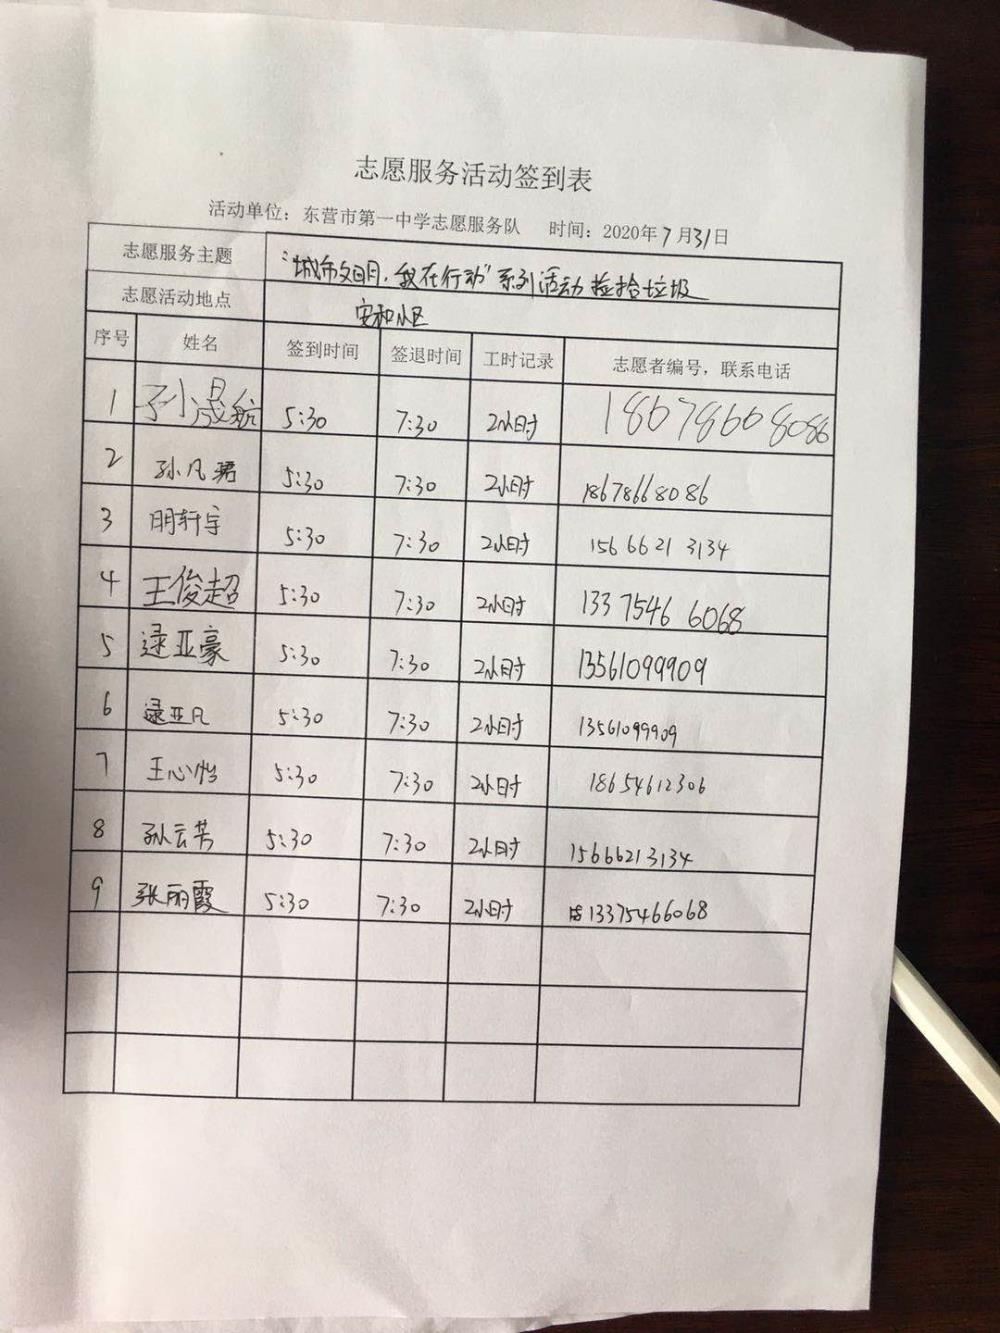 志愿服务活动签到表
活动单位：东营市第一中学志愿服务队 时间：2020年7月31日
志愿服务主题 "城市文明，我在行动"系列活动 捡拾垃圾
志愿活动地点 安和小区
序号 姓名 签到时间 签退时间 工时记录 志愿者编号，联系电话
1 孙晟航 5:30 7:30 2小时 18678668086
2 孙凡珺 5:30 7:30 2小时 18678668086
3 明轩宇 5:30 7:30 2小时 15666213134
4 王俊超 5:30 7:30 2小时 13375466068
5 逯亚豪 5:30 7:30 2小时 13561099909
6 逯亚凡 5:30 7:30 2小时 13561099909
7 王心怡 5:30 7:30 2小时 18654612306
8 孙云芳 5:30 7:30 2小时 15666213134
9 张丽霞 5:30 7:30 2小时 13375466068